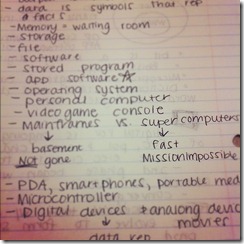 - data is symbols that rep
a facts
- Memory = waiting room
- storage
- file
- software
- stored program
- app software ☆
- operating system
- personal computer
- videogame console
- Mainframes vs. super computers
↓ ↓
basement fast
Not gone Mission impossible
- PDA, smartphones, portable med
- Microcontroller
- Digital devices + analong devic
↓ movies
data rep